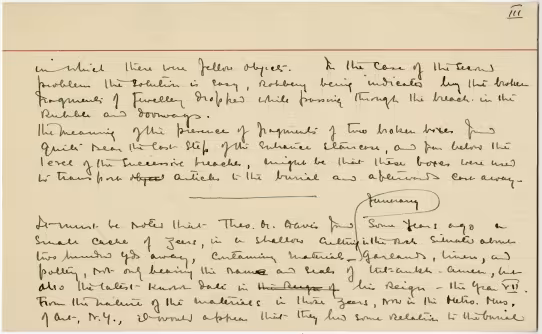 III
in which there were fellow objects. In the case of the second
problem the solution is easy, robbery being indicated by the broken
fragments of Jewellery dropped while passing through the breach in the
Rubble and doorways.
The meaning of the presence of fragments of two broken boxes found
quite near the last step of the entrance staircase, and far below the
level of the successive breaches, might be that these boxes were used
to transport articles to the burial and afterwards cast away.
funerary
It must be noted that Theo. M. Davis found some years ago a
small cache of Zeers, in a shallow cutting in the rock situated about
two hundred yds away, containing material - Garlands, linen, and
pottery, not only bearing the name and seals of Tut-ankh-amen, but
also the latest known date in his Reign - the year VII
From the nature of the materials in those Zeers, now in the Metro. Mus.
of Art, N.Y., it would appear that they had some relation to the burial